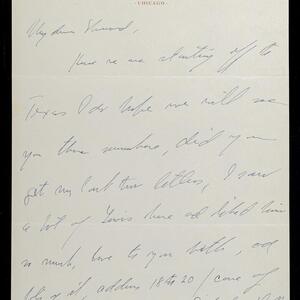 CHICAGO
My dear
Here we are starting off to
Texas I do hope we will see
you there somewhere, did you
get my last two letters, I saw
a lot of here and liked him
so much, love to you both, and
18 to 20 / care of